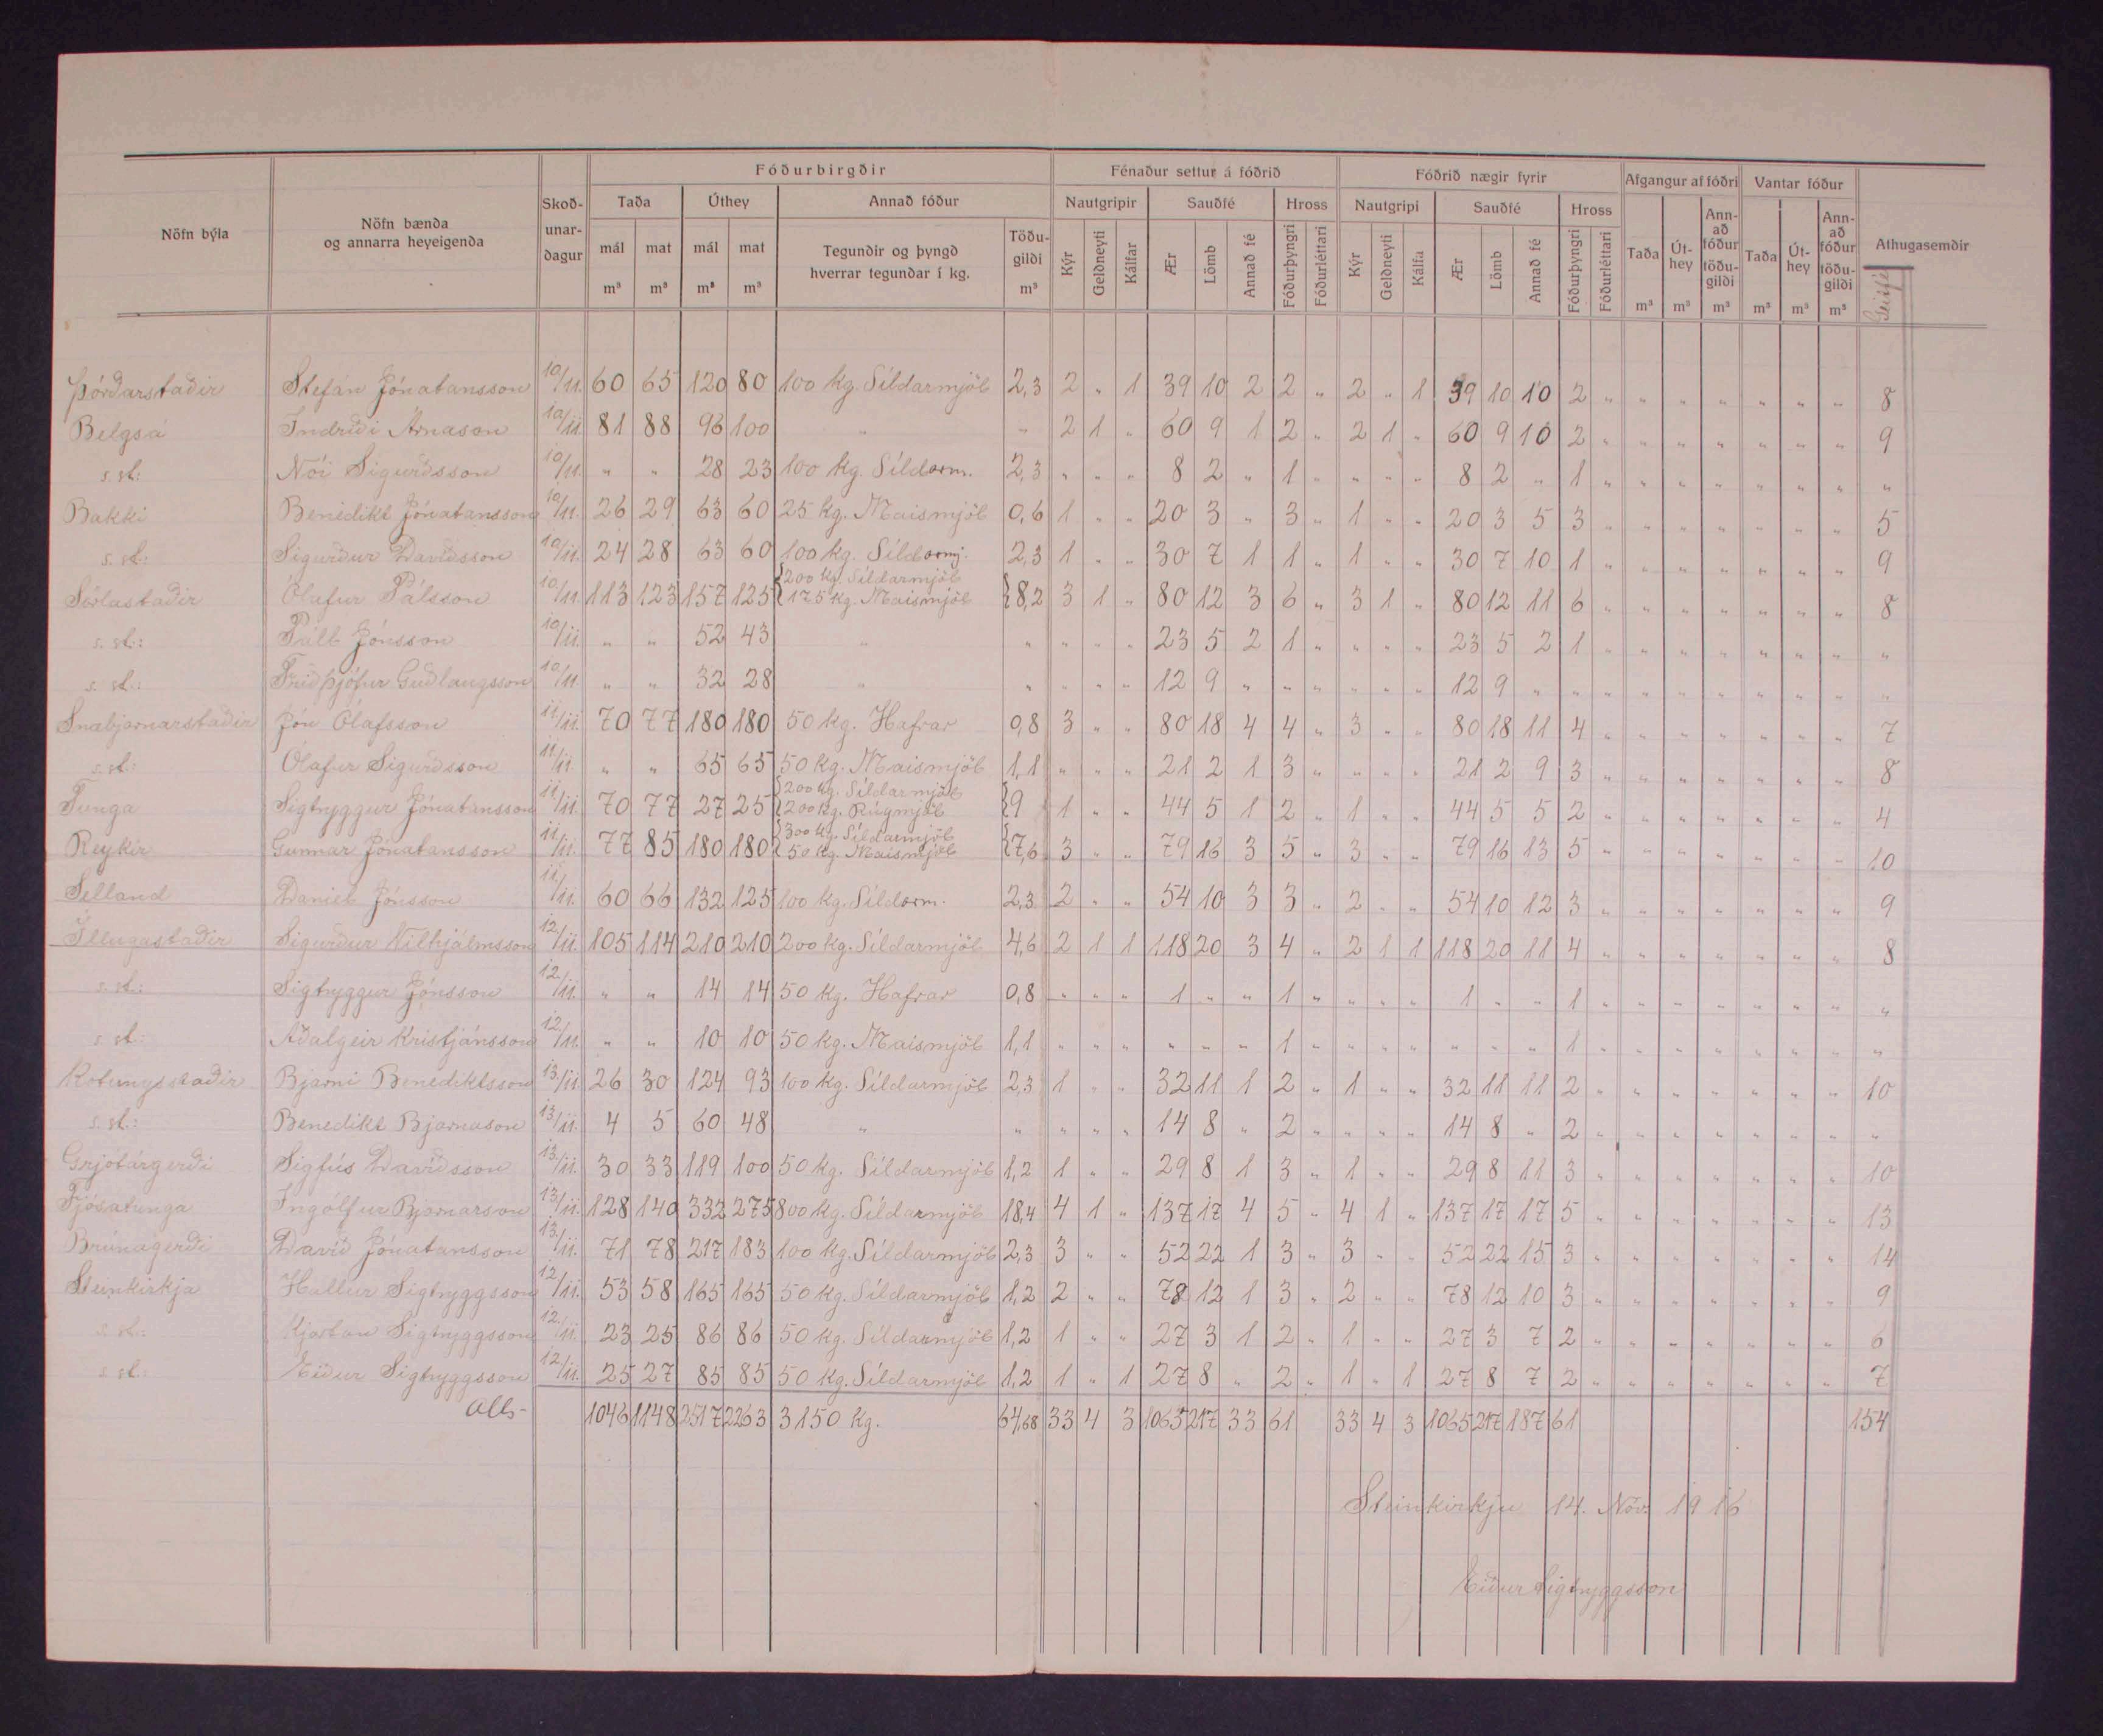 Fóðurbirgðir Fénaður settur á fóðrið Fóðrið nægir fyrir Afgangur af fóðri Vantar fóður
Nöfn býla Nöfn bænda og annarra heyeigenda Skoðunardagur Taða Úthey Annað fóður Nautgripir Sauðfé Hross Nautgripi Sauðfé Hross Taða Úthey Annað fóður töðugildi Taða Úthey Annað fóður töðugildi Athugasemdir
mál mat mál mat Tegundir og þyngd hverrar tegundar í kg. Töðugildi Kýr Geldneyti Kálfar Ær Lömb Annað fé Fóðurþyngri Fóðurléttari Kýr Geldneyti Kálfa Ær Lömb Annað fé Fóðurþyngri Fóðurléttari
m³ m³ m³ m³ m³ m³ m³ m³ m³ m³ m³
Þórðarstaðir Stefán Jónatansson 10/11. 60 65 120 80 100 kg. Síldarmjöl 2,3 2 " 1 39 10 2 2 " 2 " 1 39 10 10 2 " " " " " " " 8
Belgsá Indriði Árnason 10/11 81 88 96 100 " " 2 1 " 60 9 1 2 " 2 1 " 60 9 10 2 " " " " " " " 9
s. st.: Nói Sigurðsson 10/11. " " 28 23 100 kg. Síldarm. 2,3 " " " 8 2 " 1 " " " " 8 2 " 1 " " " " " " " "
Bakki Benedikt Jónatansson 10/11. 26 29 63 60 25 kg. Maismjöl 0,6 1 " " 20 3 " 3 " 1 " " 20 3 5 3 " " " " " " " 5
s. st.: Sigurður Davíðsson 10/11. 24 28 63 60 100 kg. Síldarmj. 2,3 1 " " 30 7 1 1 " 1 " " 30 7 10 1 " " " " " " " 9
Sörlastaðir Ólafur Pálsson 10/11 113 123 157 125 {200 kg. Síldarmjöl
{175 kg. Maismjöl }8,2 3 1 " 80 12 3 6 " 3 1 " 80 12 11 6 " " " " " " " 8
s. st.: Páll Jónsson 10/11. " " 52 43 " " " " " 23 5 2 1 " " " " 23 5 2 1 " " " " " " " "
s. st.: Friðþjófur Guðlaugsson 10/11. " " 32 28 " " " " " 12 9 " " " " " " 12 9 " " " " " " " " " "
Snæbjarnarstaðir Jón Ólafsson 11/11. 70 77 180 180 50 kg. Hafrar 0,8 3 " " 80 18 4 4 " 3 " " 80 18 11 4 " " " " " " " 7
s. st.: Ólafur Sigurðsson 11/11. " " 65 65 50 kg. Maismjöl 1,1 " " " 21 2 1 3 " " " " 21 2 9 3 " " " " " " " 8
Tunga Sigtryggur Jónatansson 11/11. 70 77 27 25 {200 kg. Síldarmjöl
{200 kg. Rúgmjöl }9 1 " " 44 5 1 2 " 1 " " 44 5 5 2 " " " " " " " 4
Reykir Gunnar Jónatansson 11/11. 77 85 180 180 {300 kg. Síldarmjöl
{50 kg. Maismjöl }7,6 3 " " 79 16 3 5 " 3 " " 79 16 13 5 " " " " " " " 10
Selland Daniel Jónsson 11/11. 60 66 132 125 100 kg. Síldarm. 2,3 2 " " 54 10 3 3 " 2 " " 54 10 12 3 " " " " " " " 9
Illugastaðir Sigurður Vilhjálmsson 12/11 105 114 210 210 200 kg. Síldarmjöl 4,6 2 1 1 118 20 3 4 " 2 1 1 118 20 11 4 " " " " " " " 8
s. st.: Sigtryggur Jónsson 12/11. " " 14 14 50 kg. Hafrar 0,8 " " " 1 " " 1 " " " " 1 " " 1 " " " " " " " "
s. st.: Aðalgeir Kristjánsson 12/11. " " 10 10 50 kg. Maismjöl 1,1 " " " " " " 1 " " " " " " " 1 " " " " " " " "
Kotungsstaðir Bjarni Benediktsson 13/11 26 30 124 93 100 kg. Síldarmjöl 2,3 1 " " 32 11 1 2 " 1 " " 32 11 11 2 " " " " " " " 10
s. st.: Benedikt Bjarnason 13/11. 4 5 60 48 " " " " " 14 8 " 2 " " " " 14 8 " 2 " " " " " " " "
Grjótárgerði Sigfús Davíðsson 13/11. 30 33 119 100 50 kg. Síldarmjöl 1,2 1 " " 29 8 1 3 " 1 " " 29 8 11 3 " " " " " " " 10
Fjósatunga Ingólfur Bjarnarson 13/11. 128 140 332 275 800 kg. Síldarmjöl 18,4 4 1 " 137 17 4 5 " 4 1 " 137 17 17 5 " " " " " " " 13
Brúnagerði Davíð Jónatansson 13/11. 71 78 217 183 100 kg. Síldarmjöl 2,3 3 " " 52 22 1 3 " 3 " " 52 22 15 3 " " " " " " " 14
Steinkirkja Hallur Sigtryggsson 12/11. 53 58 165 165 50 kg. Síldarmjöl 1,2 2 " " 78 12 1 3 " 2 " " 78 12 10 3 " " " " " " " 9
s. st.: Kjartan Sigtryggsson 12/11. 23 25 86 86 50 kg. Síldarmjöl 1,2 1 " " 27 3 1 2 " 1 " " 27 3 7 2 " " " " " " " 6
s. st.: Eiður Sigtryggsson 12/11. 25 27 85 85 50 kg. Síldarmjöl 1,2 1 " 1 27 8 " 2 " 1 " 1 27 8 7 2 " " " " " " " 7
Alls- 1046 1148 2517 2263 3150 kg. 64,68 33 4 3 1065 217 33 61 33 4 3 1065 217 187 61 154
Steinkirkju 14. Nóv. 1916
Eiður Sigtryggsson